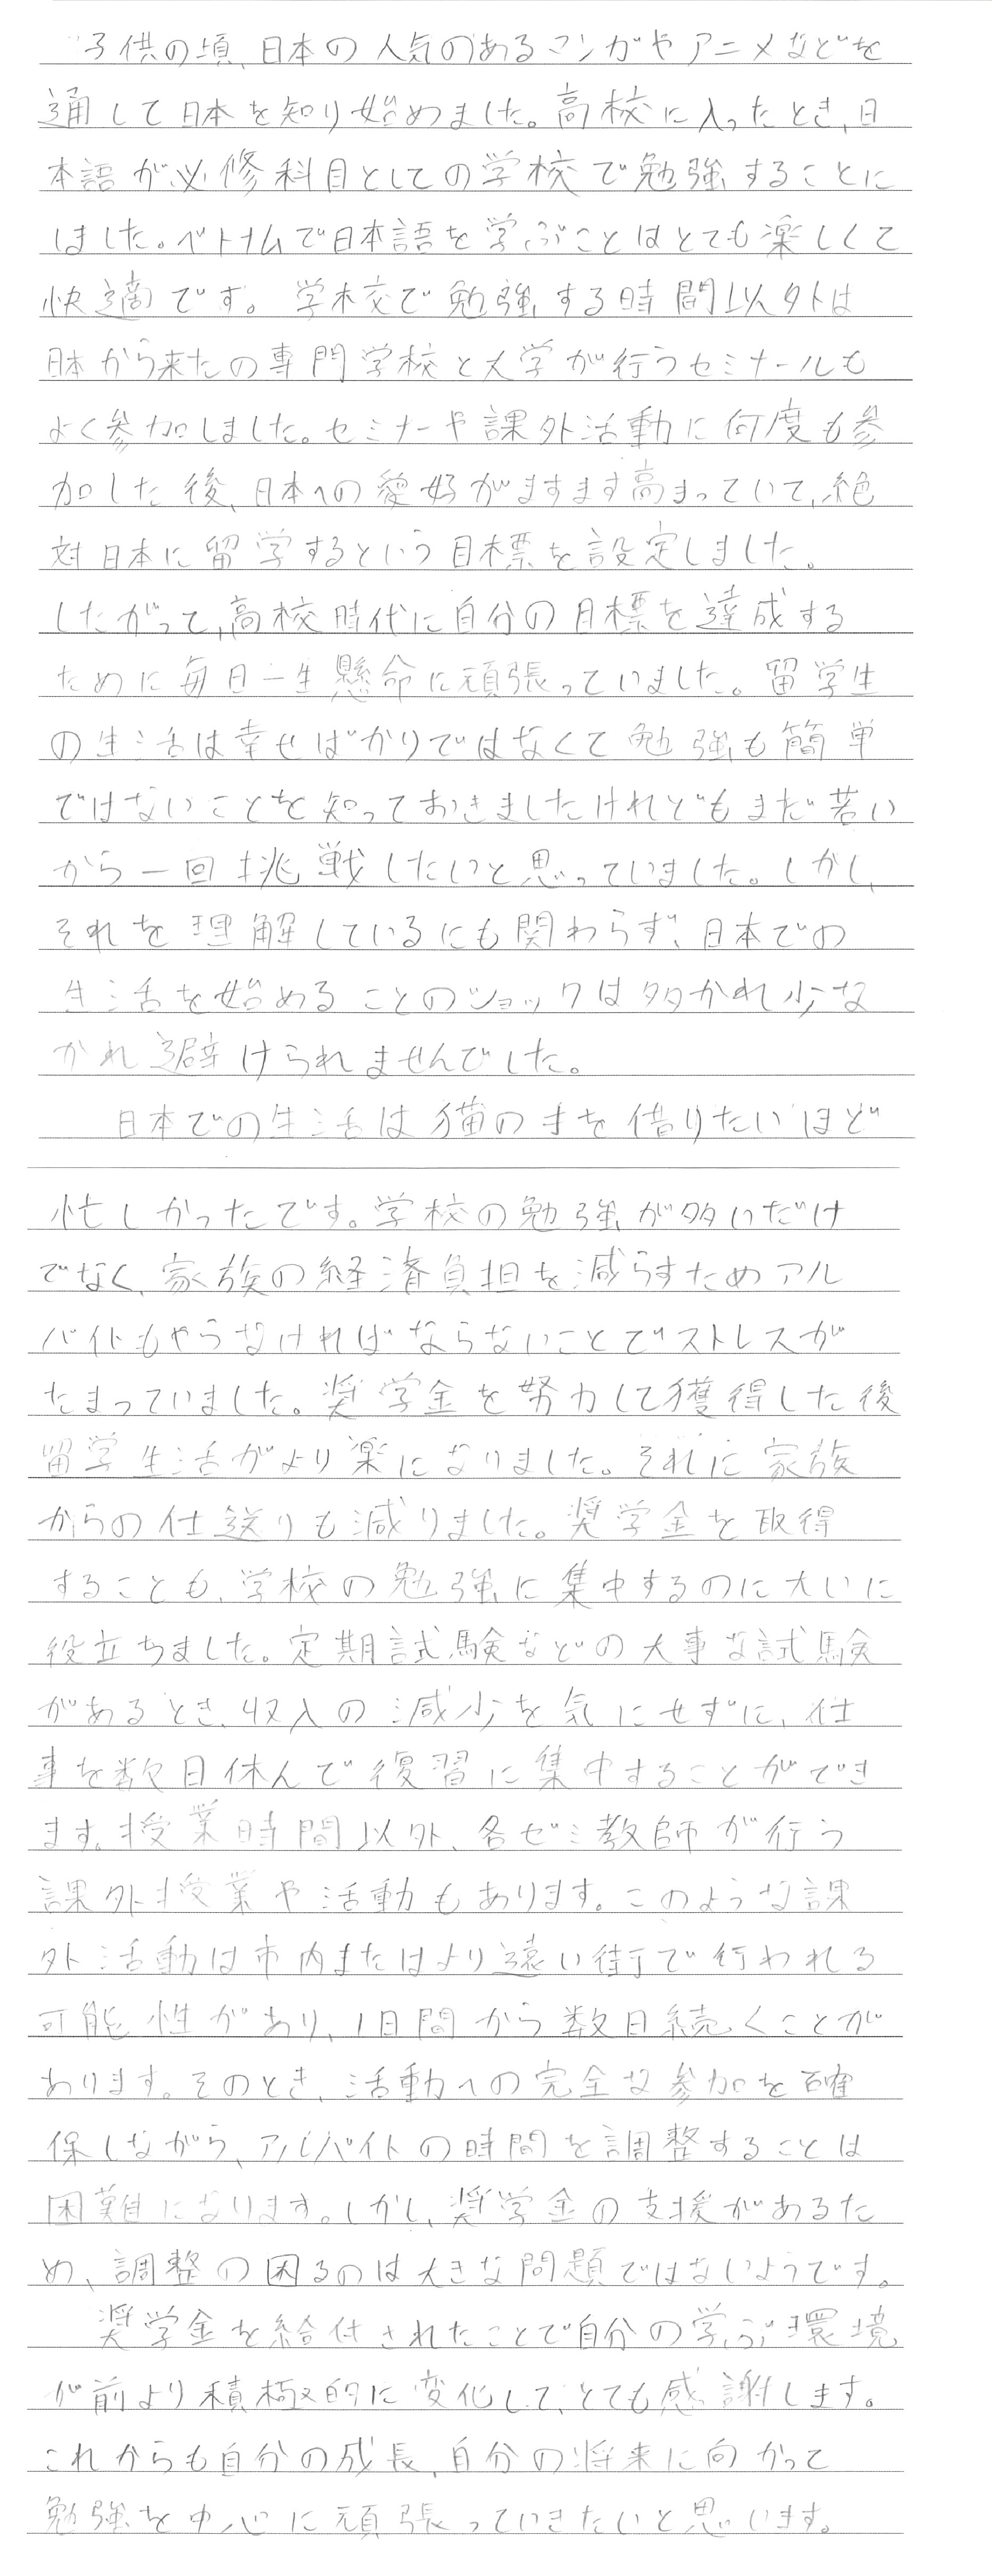 子供の頃、日本の人気のあるマンガやアニメなどを
通して日本を知り始めました。高校に入ったとき、日
本語が必修科目としての学校で勉強することに
しました。ベトナムで日本語を学ぶことはとても楽しくて
快適です。学校で勉強する時間以外は
日本から来たの専門学校と大学が行うセミナールも
よく参加しました。セミナーや課外活動に何度も参
加した後、日本への愛好がますます高まっていて、絶
対日本に留学するという目標を設定しました。
したがって、高校時代に自分の目標を達成する
ために毎日一生懸命に頑張っていました。留学生
の生活は幸せばかりではなくて勉強も簡単
ではないことを知っておきましたけれどもまだ若い
から一回挑戦したいと思っていました。しかし、
それを理解しているにも関わらず、日本での
生活を始めることのショックは多かれ少な
かれ避けられませんでした。
日本での生活は猫の手を借りたいほど
忙しかったです。学校の勉強が多いだけ
でなく、家族の経済負担を減らすためアル
バイトもやらなければならないことでストレスが
たまっていました。奨学金を努力して獲得した後
留学生活がより楽になりました。それに家族
からの仕送りも減りました。奨学金を取得
することも、学校の勉強に集中するのに大いに
役立ちました。定期試験などの大事な試験
があるとき、収入の減少を気にせずに、仕
事を数日休んで復習に集中することができ
ます。授業時間以外、各ゼミ教師が行う
課外授業や活動もあります。このような課
外活動は市内またはより遠い街で行われる
可能性があり、1日間から数日続くことが
あります。そのとき、活動への完全な参加を確
保しながら、アルバイトの時間を調整することは
困難になります。しかし、奨学金の支援があるた
め、調整の困るのは大きな問題ではないようです。
奨学金を給付されたことで自分の学ぶ環境
が前より積極的に変化して、とても感謝します。
これからも自分の成長、自分の将来に向かって
勉強を中心に頑張っていきたいと思います。